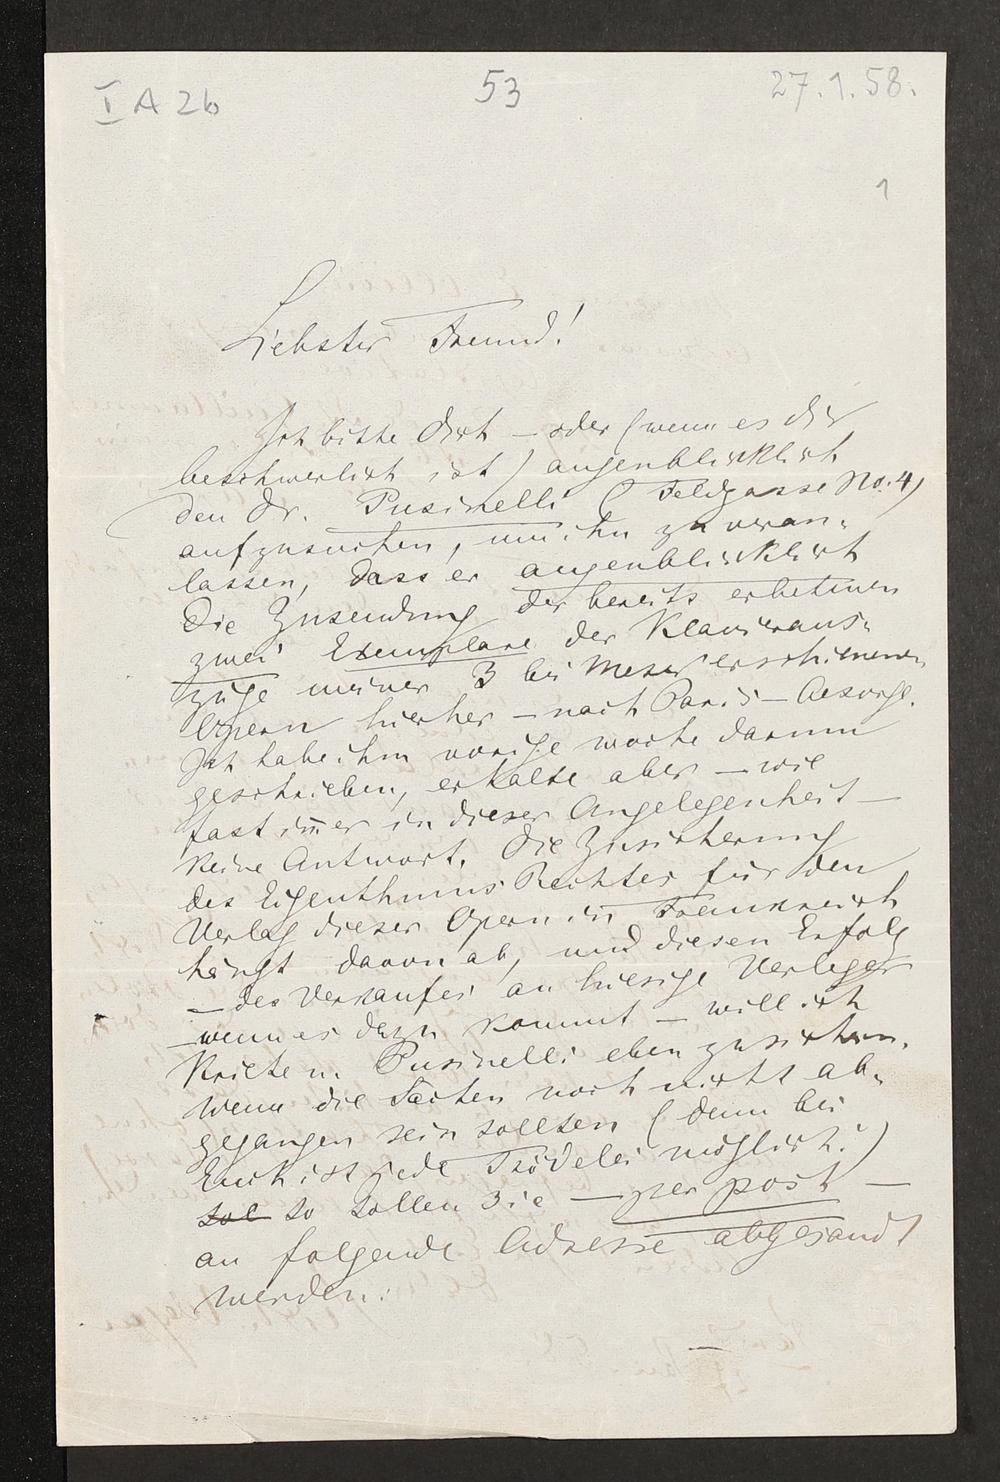 I A 2b 53 27.1.58.
1
Liebster Freund!
Ich bitte Dich – oder (wenn es dir
beschwerlich ist) augenblicklich
den Dr. Pusinelli (Feldgasse No. 4)
aufzusuchen, um ihn zu veran-
lassen, dass er augenblicklich
die Zusendung der bereits erbetenen
zwei Exemplare der Klavieraus-
züge meiner 3 bei Meser erschienenen
Opern hierher – nach Paris – besorge.
Ich habe ihm vorige Woche darum
geschrieben, erhalte aber – wie
fast im̅er in dieser Angelegenheit –
keine Antwort. Die Zusicherung
des Eigenthums Rechtes für den
Verlag dieser Opern in Frankreich
hängt davon ab, und diesen Erfolg
– des Verkaufes an hiesige Verleger
– wenn es dazu kommt – will ich
Kriete u. Pusinelli eben zusichern.
Wenn die Sachen noch nicht ab-
gegangen sein sollten (denn bei
Euch ist jede Trödelei möglich!)
sol so sollen sie – per post –
an folgende Adresse abgesandt
werden: